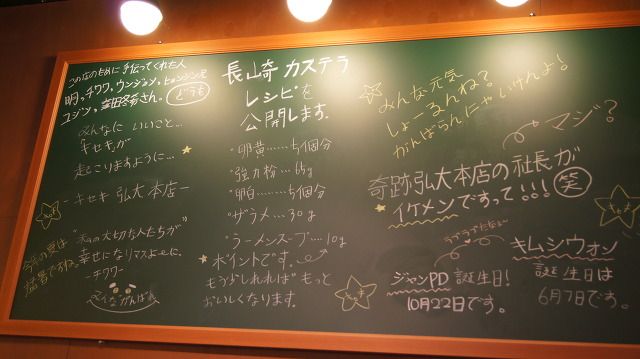 このために手伝ってくれた人
明っチワワ、ウンジョン、ヒョンジン兄
ユジン、さん。どうも
みんなに いいこと…
キセキが
起こりますように…
ーキセキ 弘大本店ー
今年の夏は
猛暑ですね。
"私の大切な人たちが"
幸せになりマスよーに
ーチワワー
がんばれ
長山奇 カステラ
レシピを
公開します。
・卵黄……5個分
・強力粉…65g
・卵白……5個分
・ザラメ…30g
・ラーメンスープ…10g
ポイントです。
もう少しれれば"もっと
おいしくなります。
みんな元気
しょーるんね?
がんばらんにゃいけんよ!
マジ?
奇跡弘大本店の社長が
イケメンですって!!! 笑
ラブラブだなぁ〜
ジャンPD 誕生日!
10月22日です。
キムシウォン
誕生日は
6月7日です。